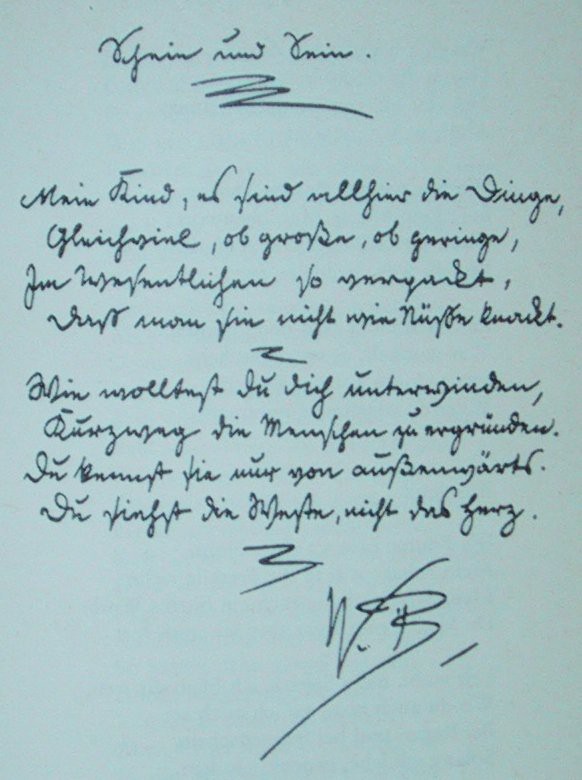 Schein und Sein.
Mein Kind, es sind allhier die Dinge,
Gleichviel, ob große, ob geringe,
Im Wesentlichen so verpackt,
Daß man sie nicht wie Nüße knackt.
Wie wolltest du dich unterwinden,
Kurzweg die Menschen zu ergründen.
Du kennst sie nur von außenwärts.
Du siehst die Weste, nicht das Herz.
W. B.